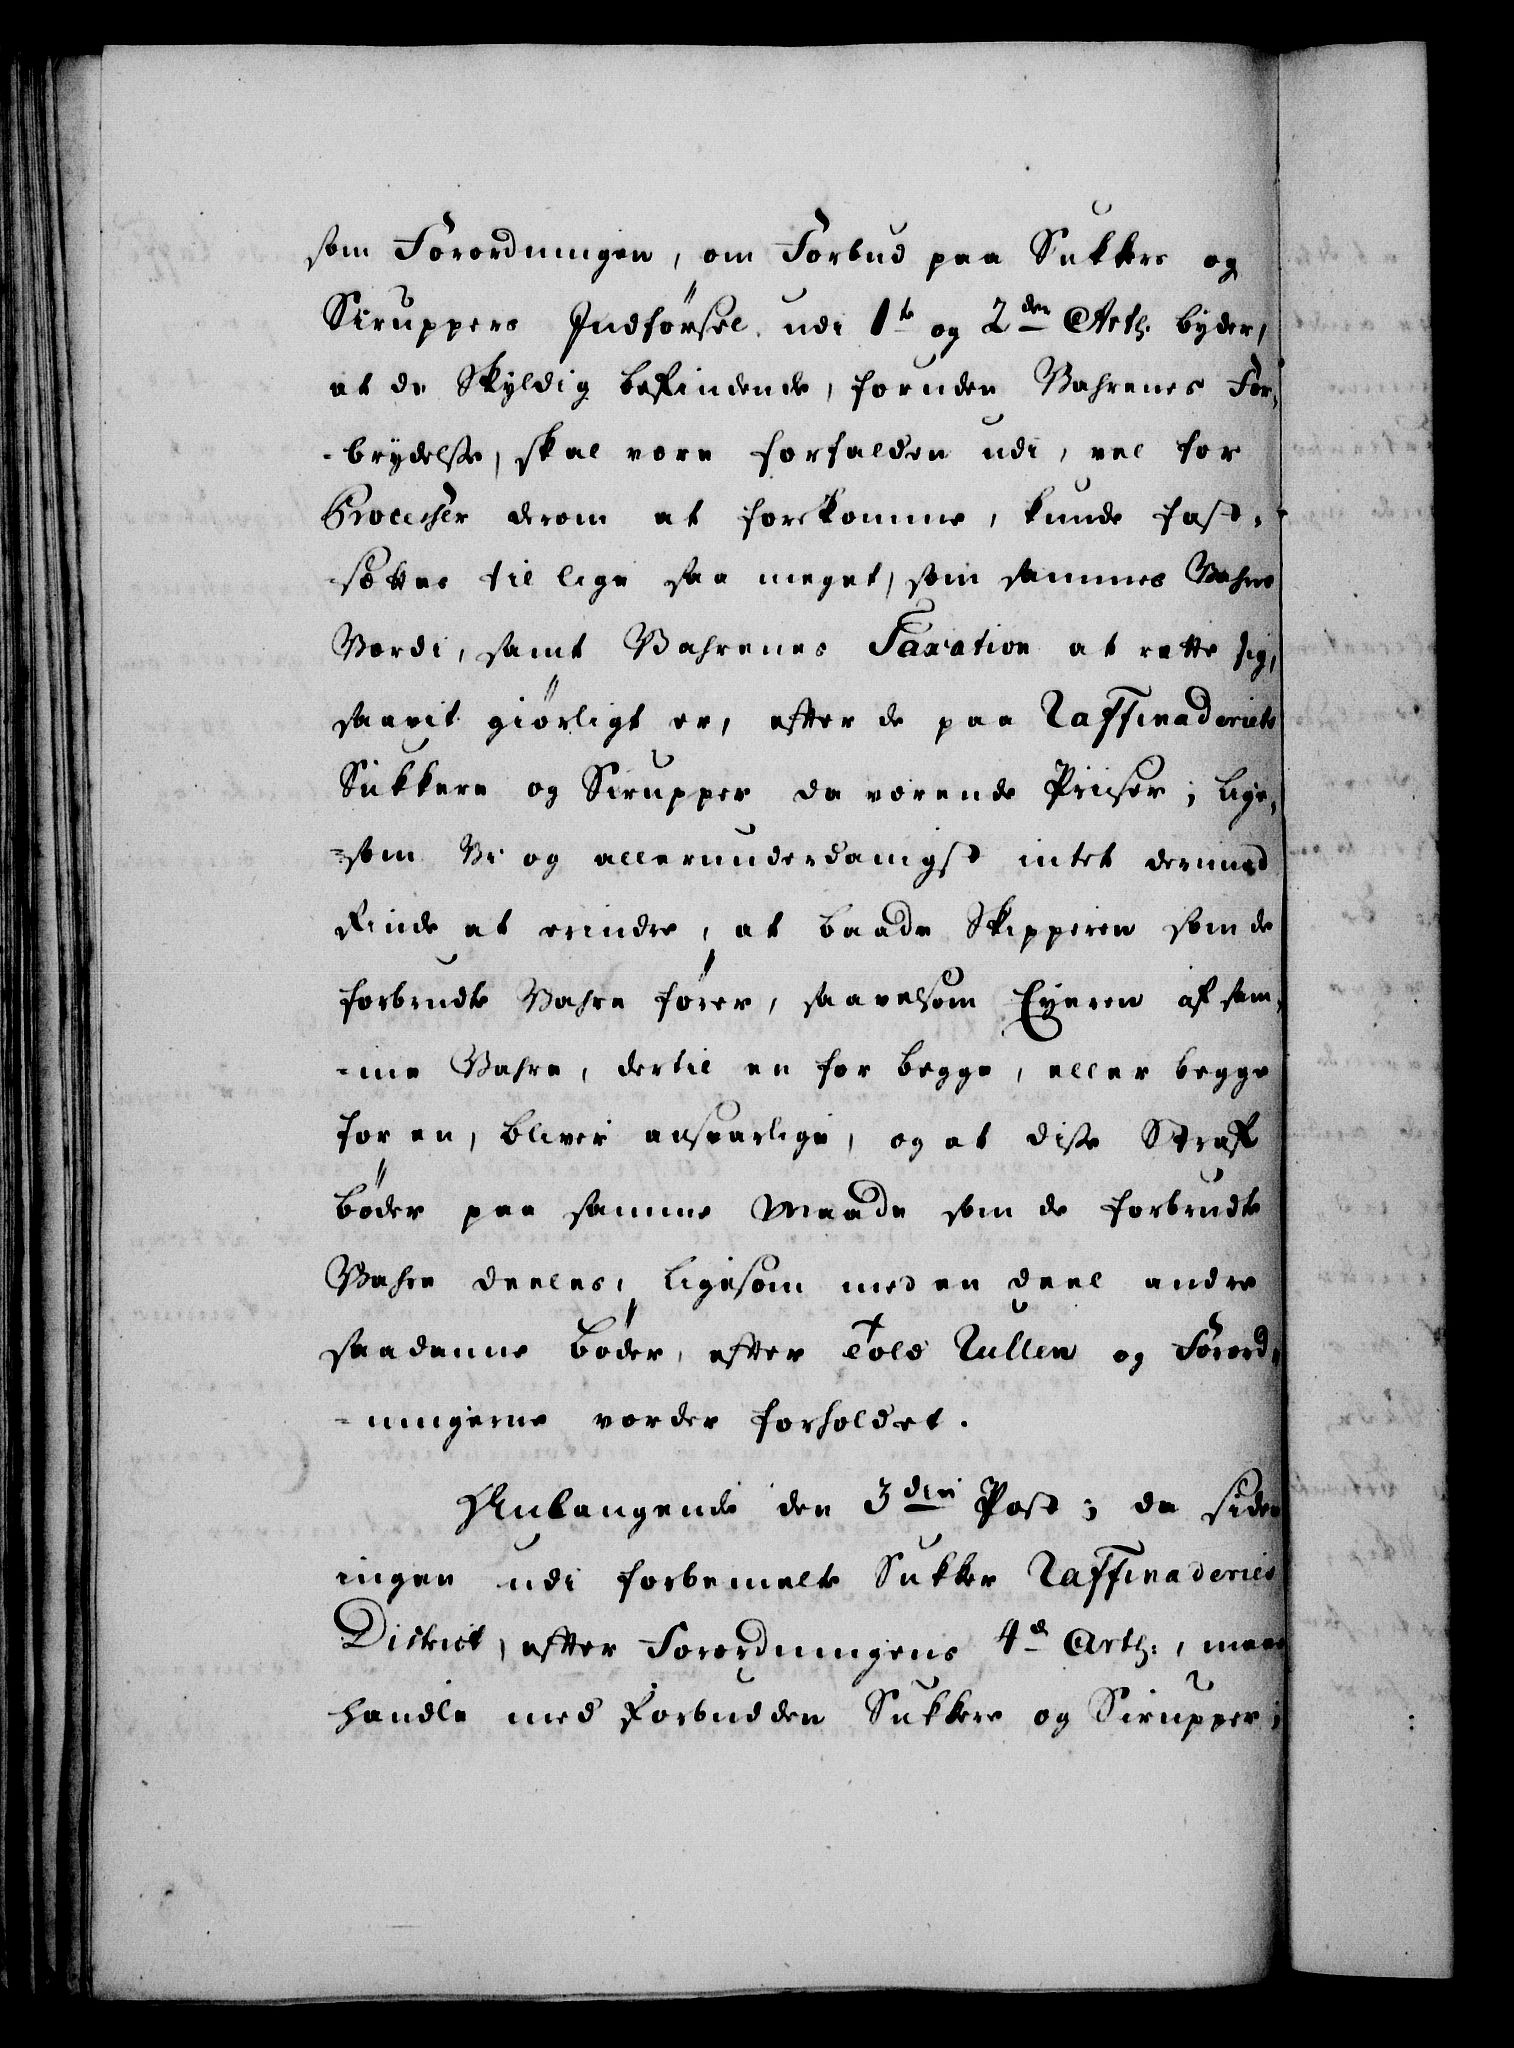 som Forordningen, om Forbud paa Sukkers og
Siruppers Indførsel udi 1te og 2den Arth. byder,
at de Skyldig befindende, foruden Vahrenes For-
-brydelse, skal være forfalden udi, vel for
Processer derom at forekomme, kunde fast-
sættes til lige saa meget, som sammes Vahres
Værdi, samt Vahrenes Taxation at rette sig,
saavit giørligt er, efter de paa Raffinaderiets
Sukkere og Sirupper da værende Priiser; lige-
=som Vi og allerunderdanigst intet derimod
finde at erindre, at baade Skipperen som de
forbudte Vahre fører, saavelsom Eyeren af sam-
-me Vahre, dertil en for begge, eller begge
for en, bliver ansvarlige, og at disse Straf
bøder paa samme Maade som de forbudte
Vahre deeles, ligesom med en deel andre
saadanne bøder, efter Told Rullen og Forord-
=ningerne vorder forholdet.
Anlangende den 3die Post; da siden
ingen udi forbemelte Sukker Raffinaderies
District, efter Forordningens 4de Arth:, maae
handle med forbudden Sukkere og Sirupper;